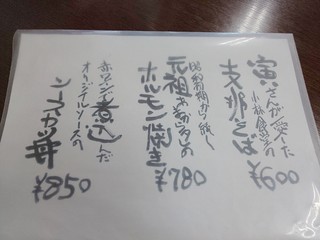 寅さんが愛した
小林食堂の
支那そば
¥600
昭和初期から続く
元祖あおるしの
ホルモン焼き
¥780
赤ワインで煮込んだ
オリジナルソースの
ソースカツ丼
¥850